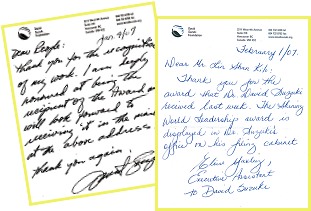 David
Suzuki
Foundation
Jan 29/07
Dear People:
Thank you for the recognition
of my work. I am deeply
honoured at being the
recipient of the Award and
will look forward to
receiving it in the mail
at the above address
Thank you again.
David
Suzuki
Foundation
February 1/07.
Dear Mr
Thank you for the
award that Dr. David Suzuki
received last week. The Shining
World Leadership award is
displayed in Dr. Suzuki's
office on his filing cabinet
Executive Assistant
to David Suzuki